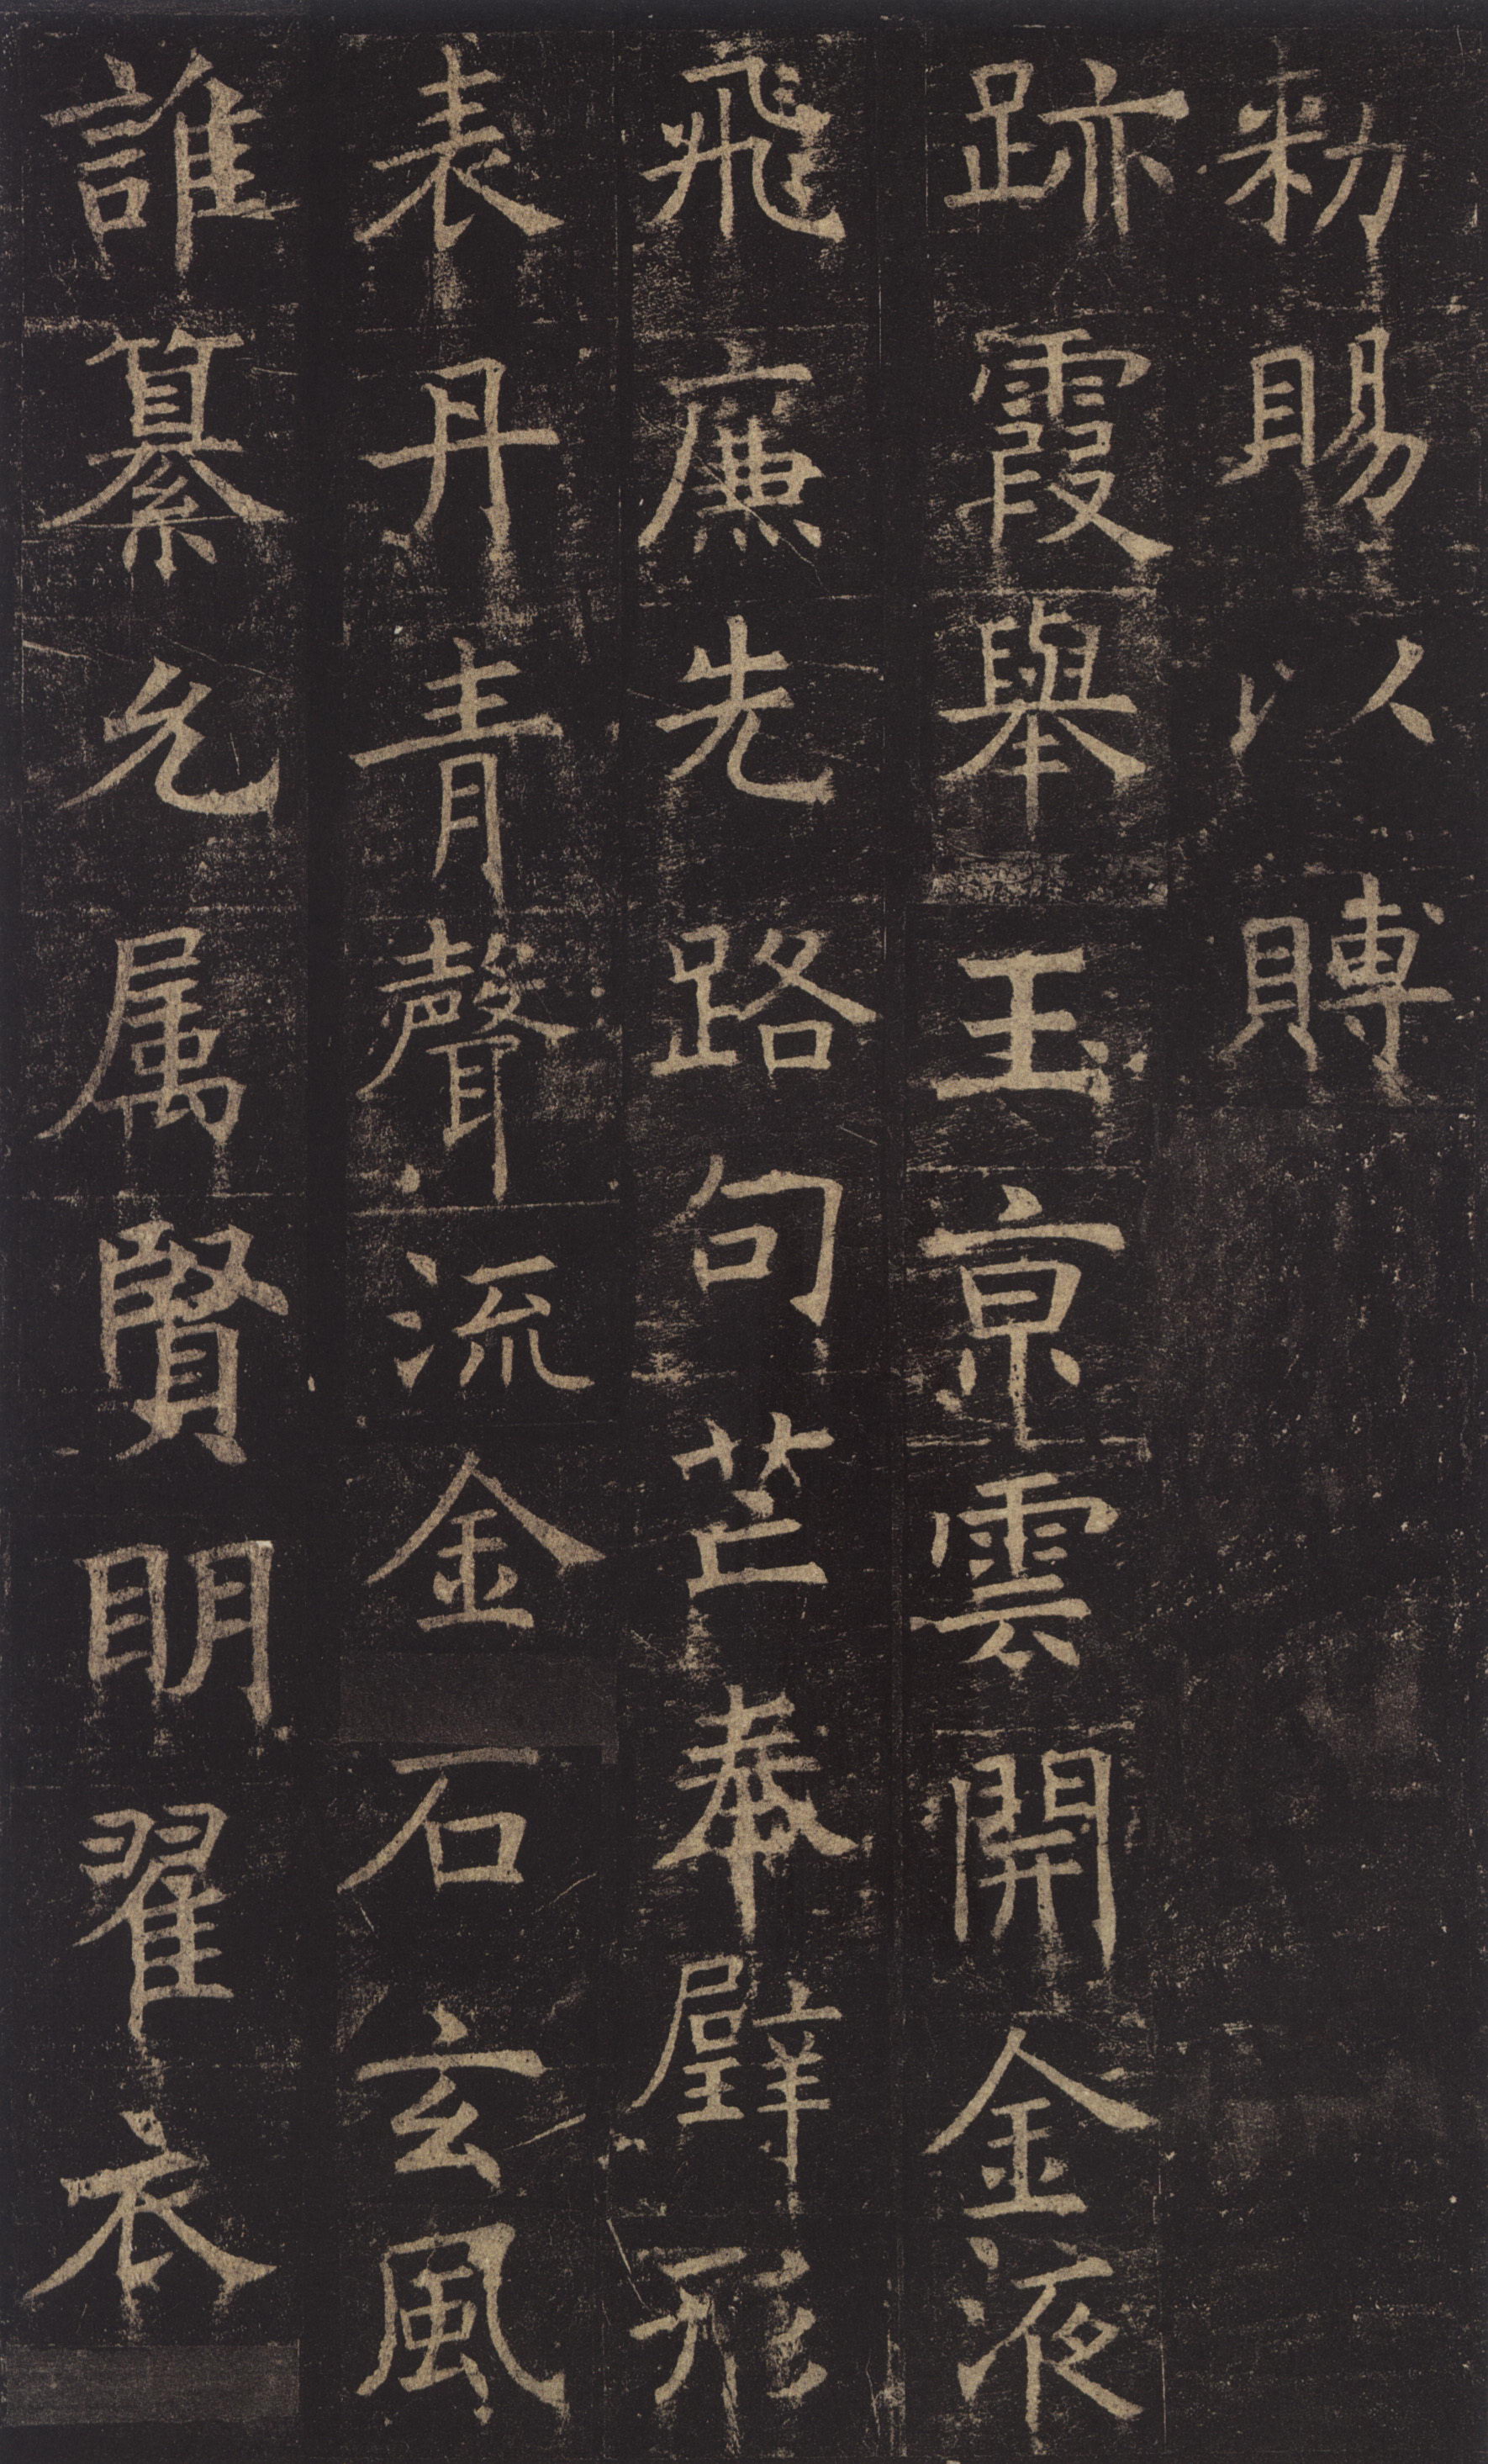 敕賜以賻
跡霞舉玉京雲開金液
飛廉先路句芒奉壁形
表丹青聲流金石玄風
誰纂允属賢明翟衣